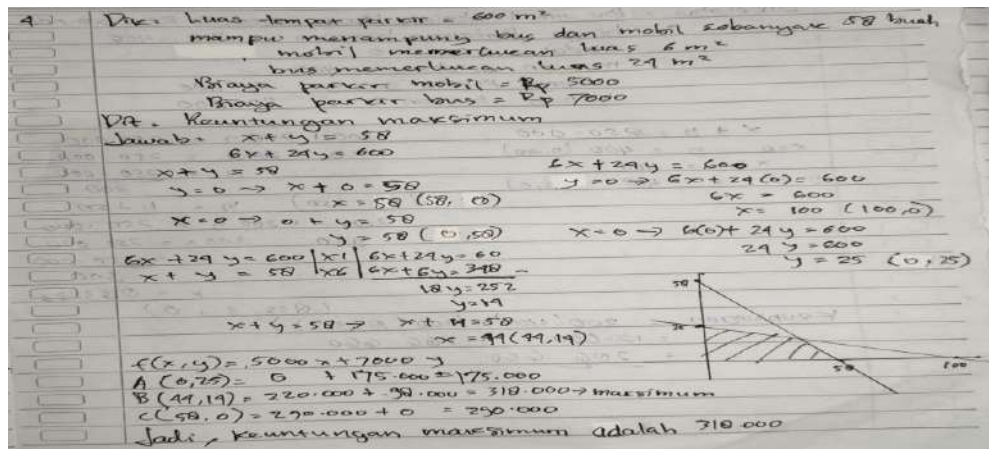 4. Dik. Luas tempat parkir = 600 m²
mampu menampung bus dan mobil sebanyak 58 buah
mobil memerlukan luas 6 m²
bus memerlukan luas 24 m²
Biaya parkir mobil = Rp 5000
Biaya parkir bus = Rp 7000
DA. Keuntungan maksimum
Jawab. x + y = 58
6x + 24y = 600
x + y = 58
y = 0 → x + 0 = 58
x = 58 (58, 0)
x = 0 → 0 + y = 58
y = 58 (0, 58)
6x + 24y = 600
y = 0 → 6x + 24(0) = 600
6x = 600
x = 100 (100,0)
x = 0 → 6(0) + 24y = 600
24y = 600
y = 25 (0,25)
6x + 24y = 600 |x1| 6x + 24y = 60
x + y = 58 |x6| 6x + 6y = 348 -
18y = 252
y = 14
x + y = 58 → x + 14 = 58
x = 44 (44,14)
58
25
58
100
f(x,y) = 5000x + 7000y
A (0,25) = 0 + 175.000 = 175.000
B (44,14) = 220.000 + 98.000 = 318.000 → maksimum
C (58, 0) = 290.000 + 0 = 290.000
Jadi, keuntungan maksimum adalah 318.000